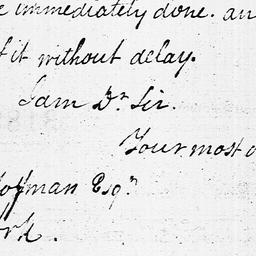 e immediately done. an
f it without delay.
I am Dr. Sir.
Your most o
offman Esqr.
ork.